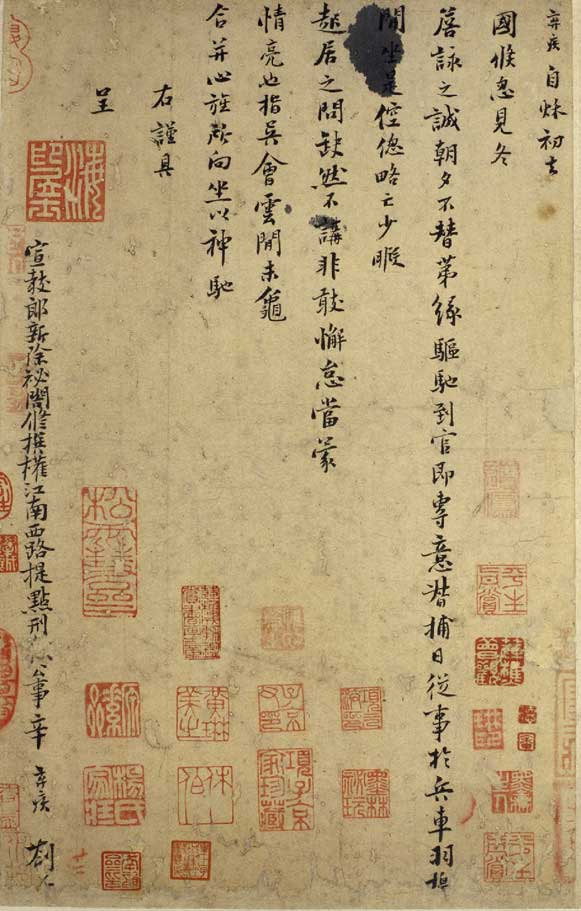 弃疾自秋初去
國倏忽見冬
詹詠之誠朝夕不替第緣驅馳到官即專意督捕日從事於兵車羽檄
間坐是倥偬略亡少暇
起居之問缺然不講非敢懈怠當蒙
情亮也指吳會雲間未龜
合并心旌所向坐以神馳
右謹具
呈
宣教郎新除祕閣修撰權江南西路提點刑獄公事辛弃疾劄子
項子京家珍藏
墨林祕玩
子京父印
黃琳美之
休伯